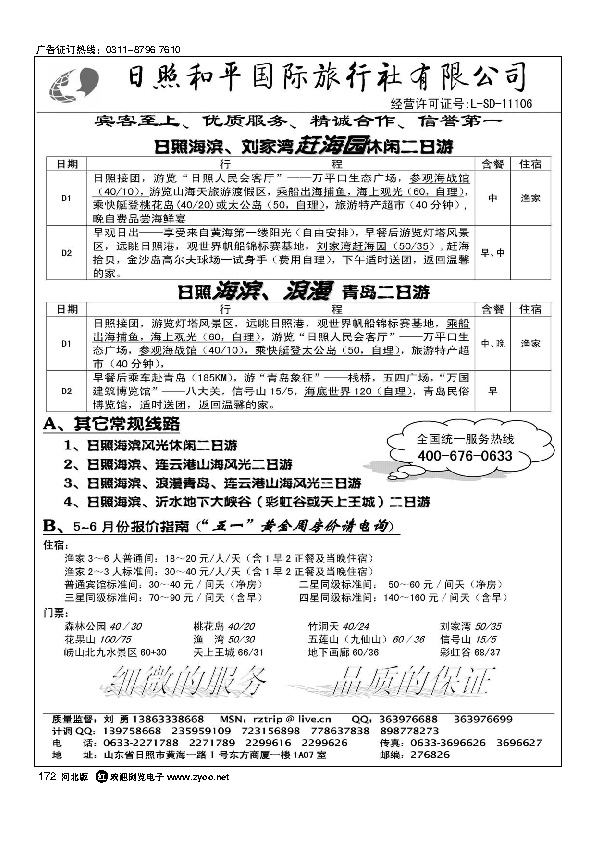 广告征订热线：0311-8796 7610
日照和平国际旅行社有限公司
经营许可证号:L-SD-11106
宾客至上、优质服务、精诚合作、信誉第一
日照海滨、刘家湾赶海园休闲二日游
日期 行 程 含餐 住宿
D1 日照接团，游览“日照人民会客厅”——万平口生态广场，参观海战馆
（40/10），游览山海天旅游渡假区，乘船出海捕鱼，海上观光（60，自理），
乘快艇登桃花岛(40/20)或太公岛（50，自理），旅游特产超市（40分钟），
晚自费品尝海鲜宴
中 渔家
D2 早观日出——享受来自黄海第一缕阳光（自由安排），早餐后游览灯塔风景
区，远眺日照港，观世界帆船锦标赛基地，刘家湾赶海园（50/35），赶海
拾贝，金沙岛高尔夫球场一试身手（费用自理），下午适时送团，返回温馨
的家。
早、中
日照海滨、浪漫 青岛二日游
日期 行 程 含餐 住宿
D1 日照接团，游览灯塔风景区，远眺日照港，观世界帆船锦标赛基地，乘船
出海捕鱼，海上观光（60，自理），游览“日照人民会客厅”——万平口生
态广场，参观海战馆（40/10），乘快艇登太公岛（50，自理），旅游特产超
市（40分钟），
中、晚 渔家
D2 早餐后乘车赴青岛（185KM），游“青岛象征”——栈桥，五四广场，“万国
建筑博览馆”——八大关，信号山15/5，海底世界120（自理），青岛民俗
博览馆，适时送团，返回温馨的家。
早
A、其它常规线路
1、日照海滨风光休闲二日游
2、日照海滨、连云港山海风光二日游
3、日照海滨、浪漫青岛、连云港山海风光三日游
4、日照海滨、沂水地下大峡谷（彩虹谷或天上王城）二日游
全国统一服务热线
400-676-0633
B、5-6月份报价指南（“五一”黄金周房价请电询）
住宿：
渔家3～6人普通间：18～20元/人/天（含1早2正餐及当晚住宿）
渔家2～3人标准间：30～40元/人/天（含1早2正餐及当晚住宿）
普通宾馆标准间：30～40元/间天（净房） 二星同级标准间： 50～60元/间天（净房）
三星同级标准间：70～90元/间天（含早） 四星同级标准间：140～160元/间天（含早）
门票：
森林公园 40/30 桃花岛 40/20 竹洞天 40/24 刘家湾 50/35
花果山 100/75 渔 湾 50/30 五莲山（九仙山）60/36 信号山 15/5
崂山北九水景区 60+30 天上王城 66/31 地下画廊 60/36 彩虹谷 68/37
细微的服务 品质的保证
质量监督：刘 勇 13863338668 MSN：rztrip@live.cn QQ：363976688 363976699
计调QQ：139758668 235959109 723156898 778637838 898778273
电 话：0633-2271788 2271789 2299616 2299626 传真：0633-3696626 3696627
地 址：山东省日照市黄海一路1号东方商厦一楼1A07室 邮编：276826
172 河北版 欢迎浏览电子 www.zyoo.net